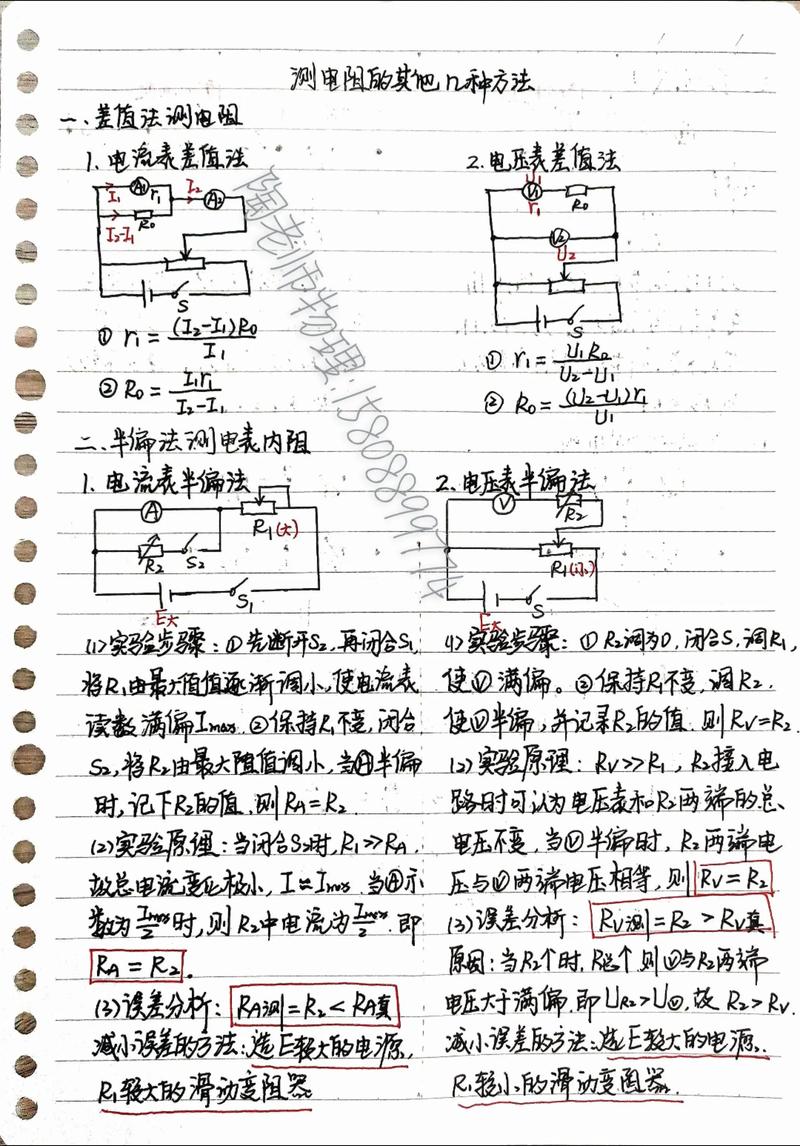 测电阻的其他几种方法
一、差值法测电阻
1. 电流表差值法
I₁ A₁ r₁ I₂ A₂
I₂-I₁ R₀
S
① r₁ = (I₂-I₁)R₀ / I₁
② R₀ = I₁r₁ / (I₂-I₁)
2. 电压表差值法
U₁
V₁ r₁ R₀
V₂
U₂
S
① r₁ = U₁R₀ / (U₂-U₁)
② R₀ = (U₂-U₁)r₁ / U₁
二、半偏法测电表内阻
1. 电流表半偏法
A R₁(大)
R₂ S₂
E大 S₁
(1)实验步骤：①先断开S₂，再闭合S₁，
将R₁由最大值值逐渐调小，使电流表
读数满偏Imax. ②保持R₁不变，闭合
S₂，将R₂由最大阻值调小，当Ⓐ半偏
时，记下R₂的值，则RA=R₂.
(2)实验原理：当闭合S₂时，R₁≫RA.
故总电流变化极小，I≈Imax. 当Ⓐ示
数为Imax/2时，则R₂中电流为Imax/2. 即
RA=R₂.
(3)误差分析：RA测=R₂<RA真
减小误差的方法：选E较大的电源，
R₁较大的滑动变阻器
2. 电压表半偏法
V R₂
R₁(小)
E大 S
(1)实验步骤：①R₂调为0，闭合S，调R₁，
使Ⓥ满偏。②保持R₁不变，调R₂.
使Ⓥ半偏，并记录R₂的值，则RV=R₂.
(2)实验原理：RV≫R₁，R₂接入电
路时可认为电压表和R₂两端的总
电压不变，当Ⓥ半偏时，R₂两端电
压与Ⓥ两端电压相等，则RV=R₂
(3)误差分析：RV测=R₂>RV真
原因：当R₂↑时，R总↑则Ⓥ与R₂两端
电压大于满偏，即UR₂>UⓋ，故R₂>RV.
减小误差的方法：选E较大的电源.
R₁较小的滑动变阻器.
陶老师物理:15808899774